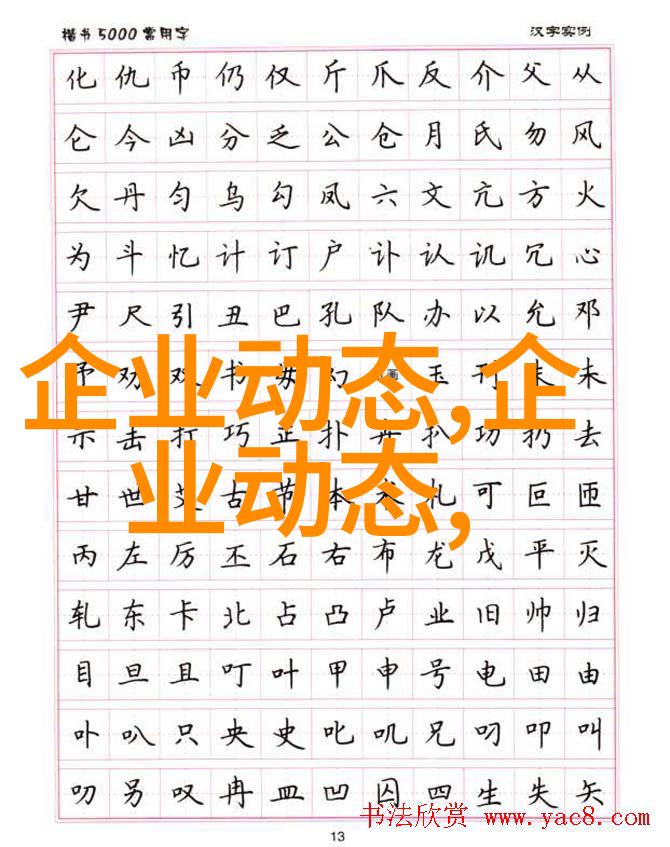 楷书5000常用字 汉字实例
化仇币仍仅斤爪反介父从
仑今凶分乏公仓月氏勿风
欠丹匀乌勾凤六文亢方火
为斗忆计订户讣认讥冗心
尹尺引丑巴孔队办以允邓
予劝双书毋幻画玉刊末未
企业动态,企
示击打巧正扑卉扒功扔去
甘世艾古节本术札可叵匝
业动态,
丙左厉丕石右布龙戊平灭
轧东卡北占凸卢业旧帅归
目旦且叮叶甲申号电田由
卟叭只央史叱叽兄叼叩叫
叨另叹冉皿凹囚四生失矢
书法欣赏 www.yac8.com
13